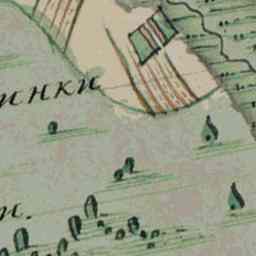 инки
и.